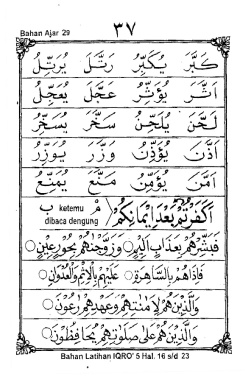 Bahan Ajar 29
٣٧
كَبَّرَ يُكَبِّرُ رَتَّلَ يُرَتِّلُ
اَثَّرَ يُؤَثِّرُ عَجَّلَ يُعَجِّلُ
لَحَّنَ يُلَحِّنُ سَخَّرَ يُسَخِّرُ
اَذَّنَ يُؤَذِّنُ وَزَّرَ يُوَزِّرُ
اَمَّنَ يُؤَمِّنُ مَنَّعَ يُمَنِّعُ
اَكَفَرْتُمْ بَعْدَ اِيْمَانِكُمْ مْ ketemu ب dibaca dengung
فَبَشِّرْهُمْ بِعَذَابٍ اَلِيْمٍ ○ وَزَوَّجْنٰهُمْ بِحُوْرٍ عِيْنٍ ○
فَاِذَاهُمْ بِالسَّاهِرَةِ ○ عَلَيْهِمْ بِالْاِثْمِ وَالْعُدْوَانِ ○
وَالَّذِيْنَ هُمْ لِاَمٰنٰتِهِمْ وَعَهْدِهِمْ رَاعُوْنَ ○
وَالَّذِيْنَ هُمْ عَلٰى صَلَوٰتِهِمْ يُحَافِظُوْنَ ○
Bahan Latihan IQRO' 5 Hal. 16 s/d 23